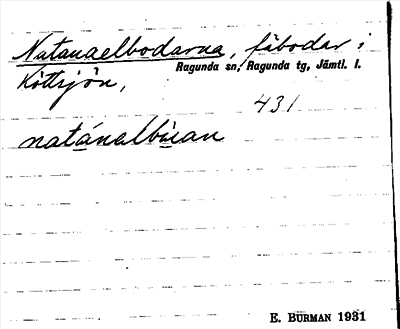 Natanaelbodarna, fäbodar i
Ragunda sn, Ragunda tg, Jämtl. l.
Köttsjön,
431
natánalbùan
E. BURMAN 1931